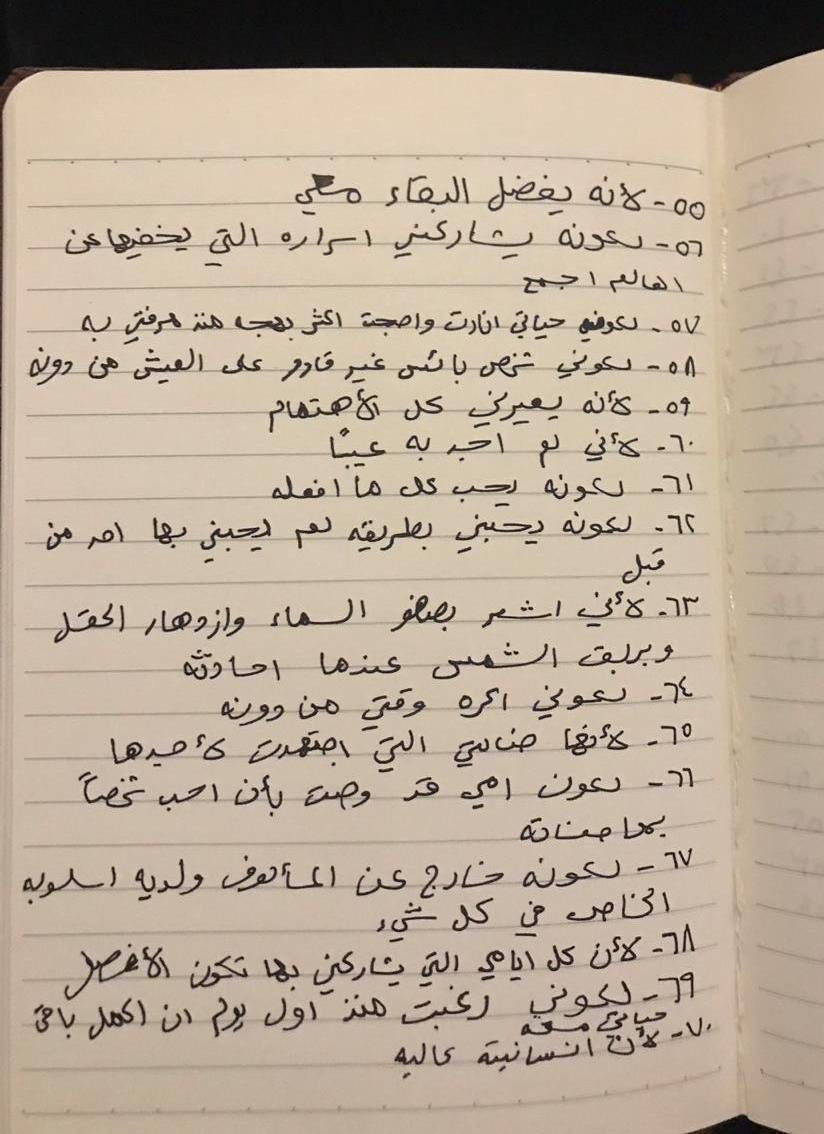 ٥٥- لأنه يفضل البقاء معي
٥٦- لكونه يشاركني اسراره التي يخفيها عن
العالم اجمع
٥٧- لكون حياتي انارت واصبحت اكثر بهجه منذ معرفتي به
٥٨- لكوني شخص بائس غير قادر على العيش من دونه
٥٩- لأنه يعيرني كل الأهتمام
٦٠- لأني لم اجد به عيبًا
٦١- لكونه يحب كل ما افعله
٦٢- لكونه يحبني بطريقه لم يحبني بها احد من
قبل
٦٣- لأني اشعر بصفو السماء وازدهار الحقل
وبريق الشمس عندما احادثه
٦٤- لكوني اكره وقتي من دونه
٦٥- لأنها ضالتي التي اجتهدت لأجدها
٦٦- لكون امي قد وصت بأن احب شخصاً
بمواصفاته
٦٧- لكونه خارج عن المألوف ولديه اسلوبه
الخاص في كل شيء
٦٨- لأن كل ايامي التي يشاركني بها تكون الأفضل
٦٩- لكوني رغبت منذ اول يوم ان اكمل باقي
حياتي معه
٧٠- لأن انسانيته عاليه